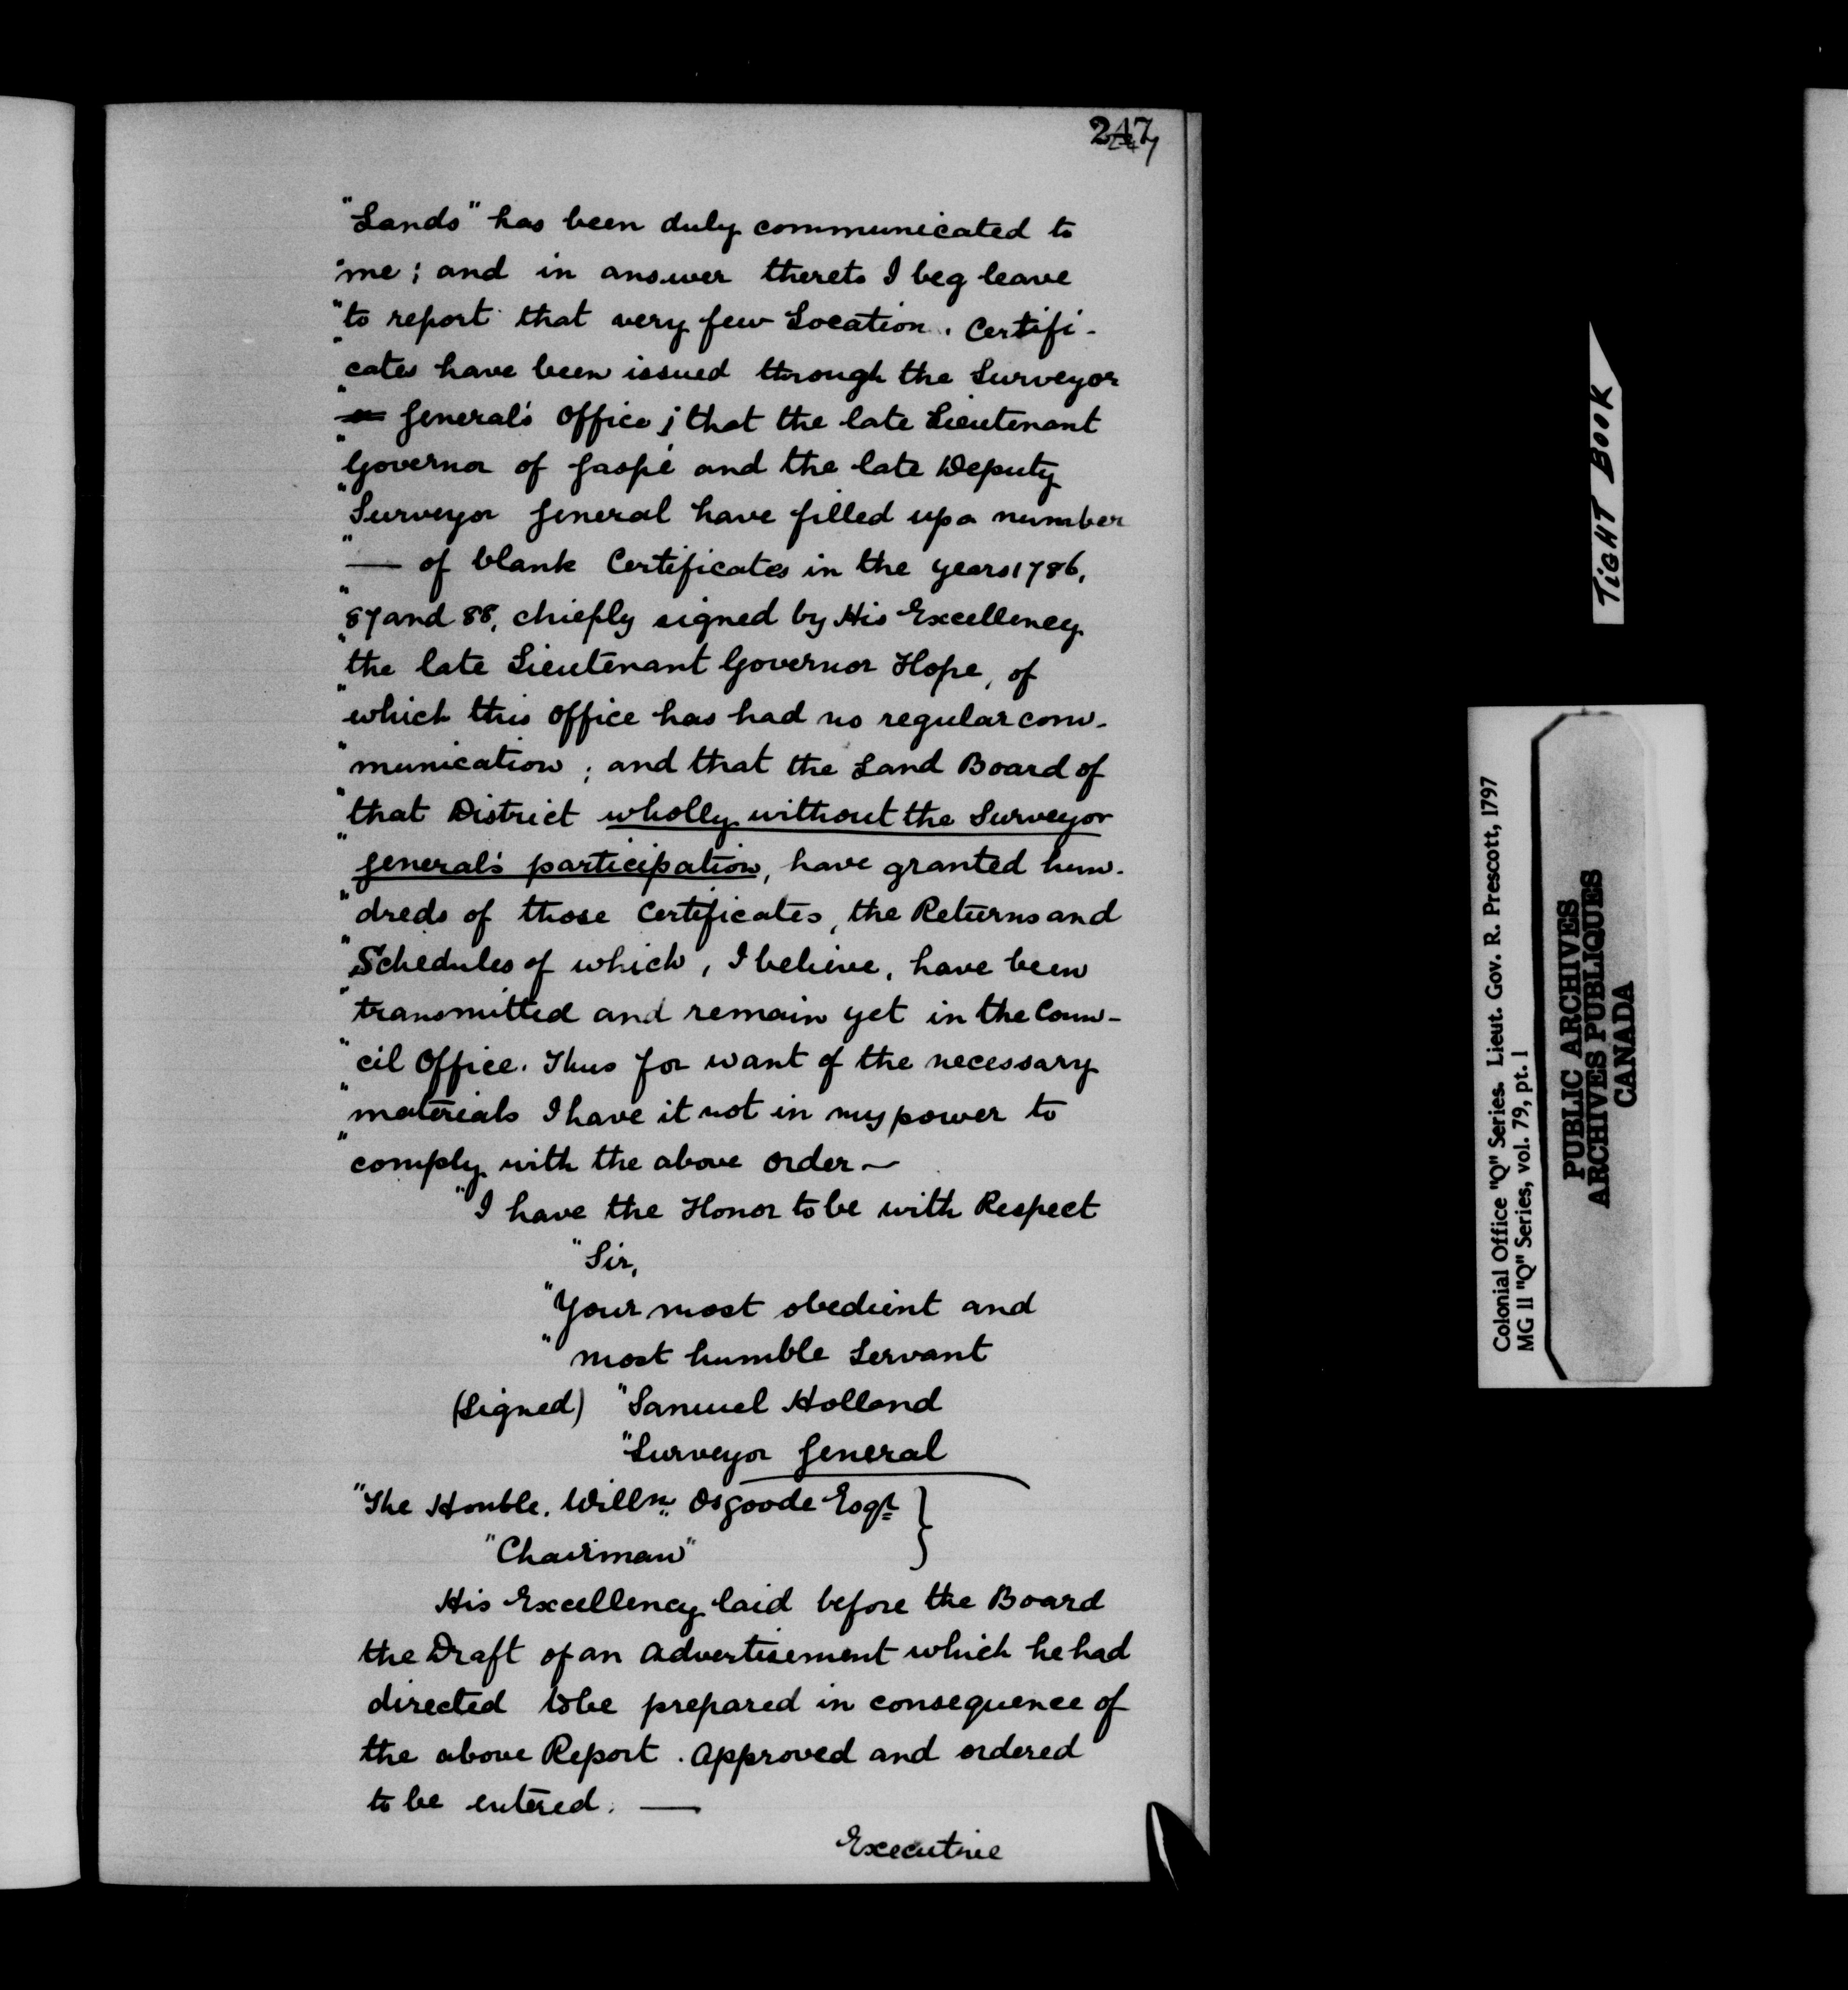 247
247
"Lands" has been duly communicated to
"me; and in answer thereto I beg leave
"to report that very few Location. Certifi-
"cates have been issued through the Surveyor
" General's Office; that the late Lieutenant
"Governor of Gaspé and the late Deputy
"Surveyor General have filled up a number
"— of blank Certificates in the years 1786,
"87 and 88, chiefly signed by His Excellency
"the late Lieutenant Governor Hope, of
"which this Office has had no regular com-
"munication; and that the Land Board of
"that District wholly without the Surveyor
"General's participation, have granted hun-
"dreds of those Certificates, the Returns and
"Schedules of which, I believe, have been
"transmitted and remain yet in the Coun-
"cil Office. Thus for want of the necessary
"materials I have it not in my power to
"comply with the above order —
"I have the Honor to be with Respect
"Sir,
"Your most obedient and
"most humble Servant
(Signed) "Samuel Holland
"Surveyor General
"The Honble. Willm. Osgoode Esqr.
"Chairman"
His Excellency laid before the Board
the Draft of an Advertisement which he had
directed to be prepared in consequence of
the above Report. Approved and ordered
to be entered. —
Executive
TIGHT BOOK
Colonial Office "Q" Series. Lieut. Gov. R. Prescott, 1797
MG 11 "Q" Series, vol. 79, pt. 1
PUBLIC ARCHIVES
ARCHIVES PUBLIQUES
CANADA